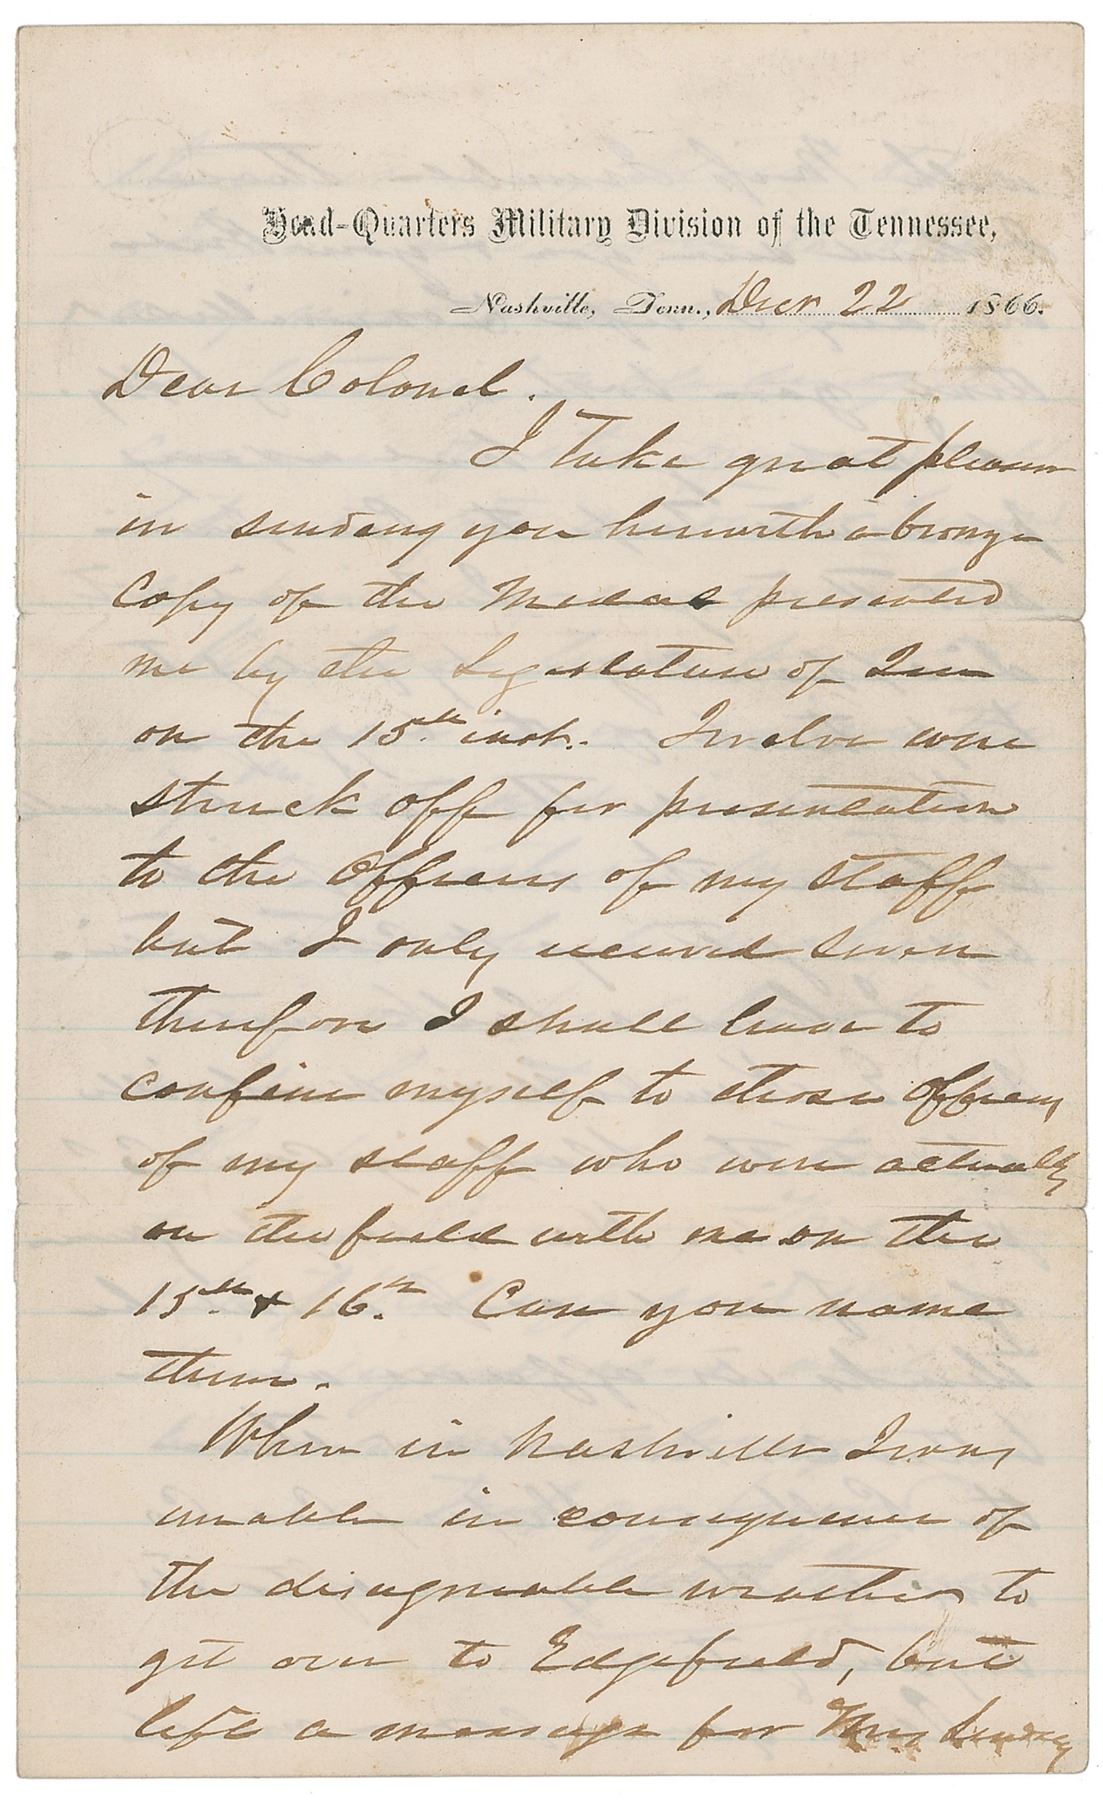 Head-Quarters Military Division of the Tennessee,
Nashville, Tenn., Decr 22 1866.
Dear Colonel.
I take great pleasure
in sending you herewith a bronze
Copy of the Medal presented
me by the Legislature of Ten
on the 15th inst. Twelve were
struck off for presentation
to the Officers of my Staff
but I only received seven
therefore I shall have to
confine myself to those Officers
of my staff who were actually
on the field with me on the
15th & 16th. Can you name
them.
When in Nashville I was
unable in consequence of
the disagreeable weather to
get over to Edgefield, but
left a message for Mrs Lindsley